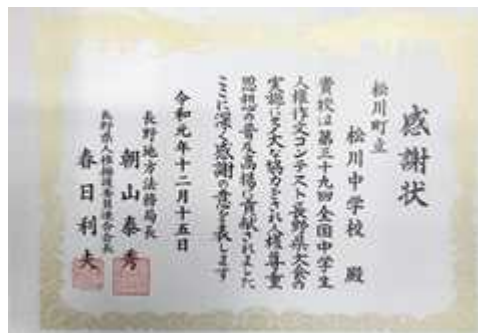 感謝状
松川町立
松川中学校 殿
貴校は第三十九回全国中学生
人権作文コンテスト長野県大会の
実施に多大な協力をされ人権尊重
思想の普及高揚に貢献されました
ここに深く感謝の意を表します
令和元年十二月十五日
長野地方法務局長
朝山泰秀
長野県人権擁護委員連合会長
春日利夫